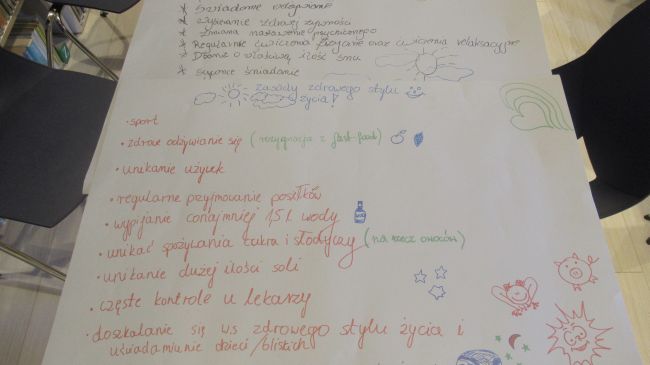 * Świadome odżywianie
* Wybieranie zdrowej żywności
* Zmiana nastawienia psychicznego
* Regularnie ćwiczenia fizyczne oraz ćwiczenia relaksacyjne
* Dbanie o właściwą ilość snu
* Sypanie śniadanie
Zasady zdrowego stylu
życia!
• sport
• zdrowe odżywianie się (rezygnacja z fast-food)
• unikanie używek
• regularne przyjmowanie posiłków
• wypijanie conajmniej 1,5 l wody
• unikać spożywania cukru i słodyczy (na rzecz owoców)
• unikanie dużej ilości soli
• częste kontrole u lekarzy
• doszkalanie się w.s zdrowego stylu życia i
uświadamianie dzieci/bliskich